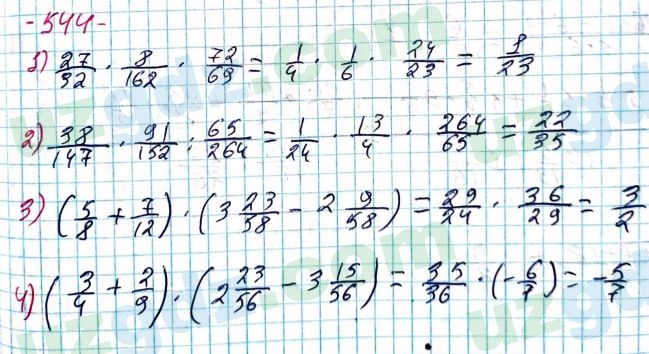 -544-
1) 27/32 · 8/162 · 72/69 = 1/4 · 1/6 · 24/23 = 1/23
2) 38/147 · 91/152 : 65/264 = 1/24 · 13/4 · 264/65 = 22/35
3) (5/8 + 7/12) · (3 23/58 - 2 9/58) = 29/24 · 36/29 = 3/2
4) (3/4 + 2/9) · (2 23/56 - 3 15/56) = 35/36 · (-6/7) = -5/7